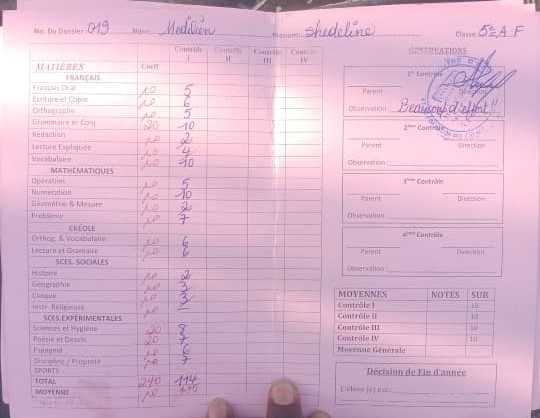 No. Du Dossier 019 Nom: Medilien Prénom: shedeline Classe 5e A.F
MATIÈRES Coeff Contrôle I Contrôle II Contrôle III Contrôle IV
FRANÇAIS
Français Oral 10 5
Ecriture et Copie 10 6
Orthographe 10 5
Grammaire et Conj 20 10
Rédaction 10 2
Lecture Expliquée 10 4
Vocabulaire 10 10
MATHÉMATIQUES
Opération 10 5
Numération 10 10
Géométrie & Mesure 10 2
Problème 10 7
CRÉOLE
Orthog. & Vocabulaire 10 6
Lecture et Gramaire 10 6
SCES. SOCIALES
Histoire 10 2
Géographie 10 3
Civique 10 3
Instr. Religieuse 10
SCES.EXPÉRIMENTALES
Sciences et Hygiène 20 8
Poésie et Dessin 20 7
Espagnol 10 6
Discipline / Propreté 10 7
SPORTS
TOTAL 240 114
MOYENNE 10
OBSERVATIONS
1er Contrôle
Parent Direction
Observation: Beaucoup d'effort!!
2ème Contrôle
Parent Direction
Observation:
3ème Contrôle
Parent Direction
Observation
4ème Contrôle
Parent Direction
Observation:
MOYENNES NOTES SUR
Contrôle I 10
Contrôle II 10
Contrôle III 10
Contrôle IV 10
Moyenne Générale
Décision de Fin d'année
L'élève (e) est: